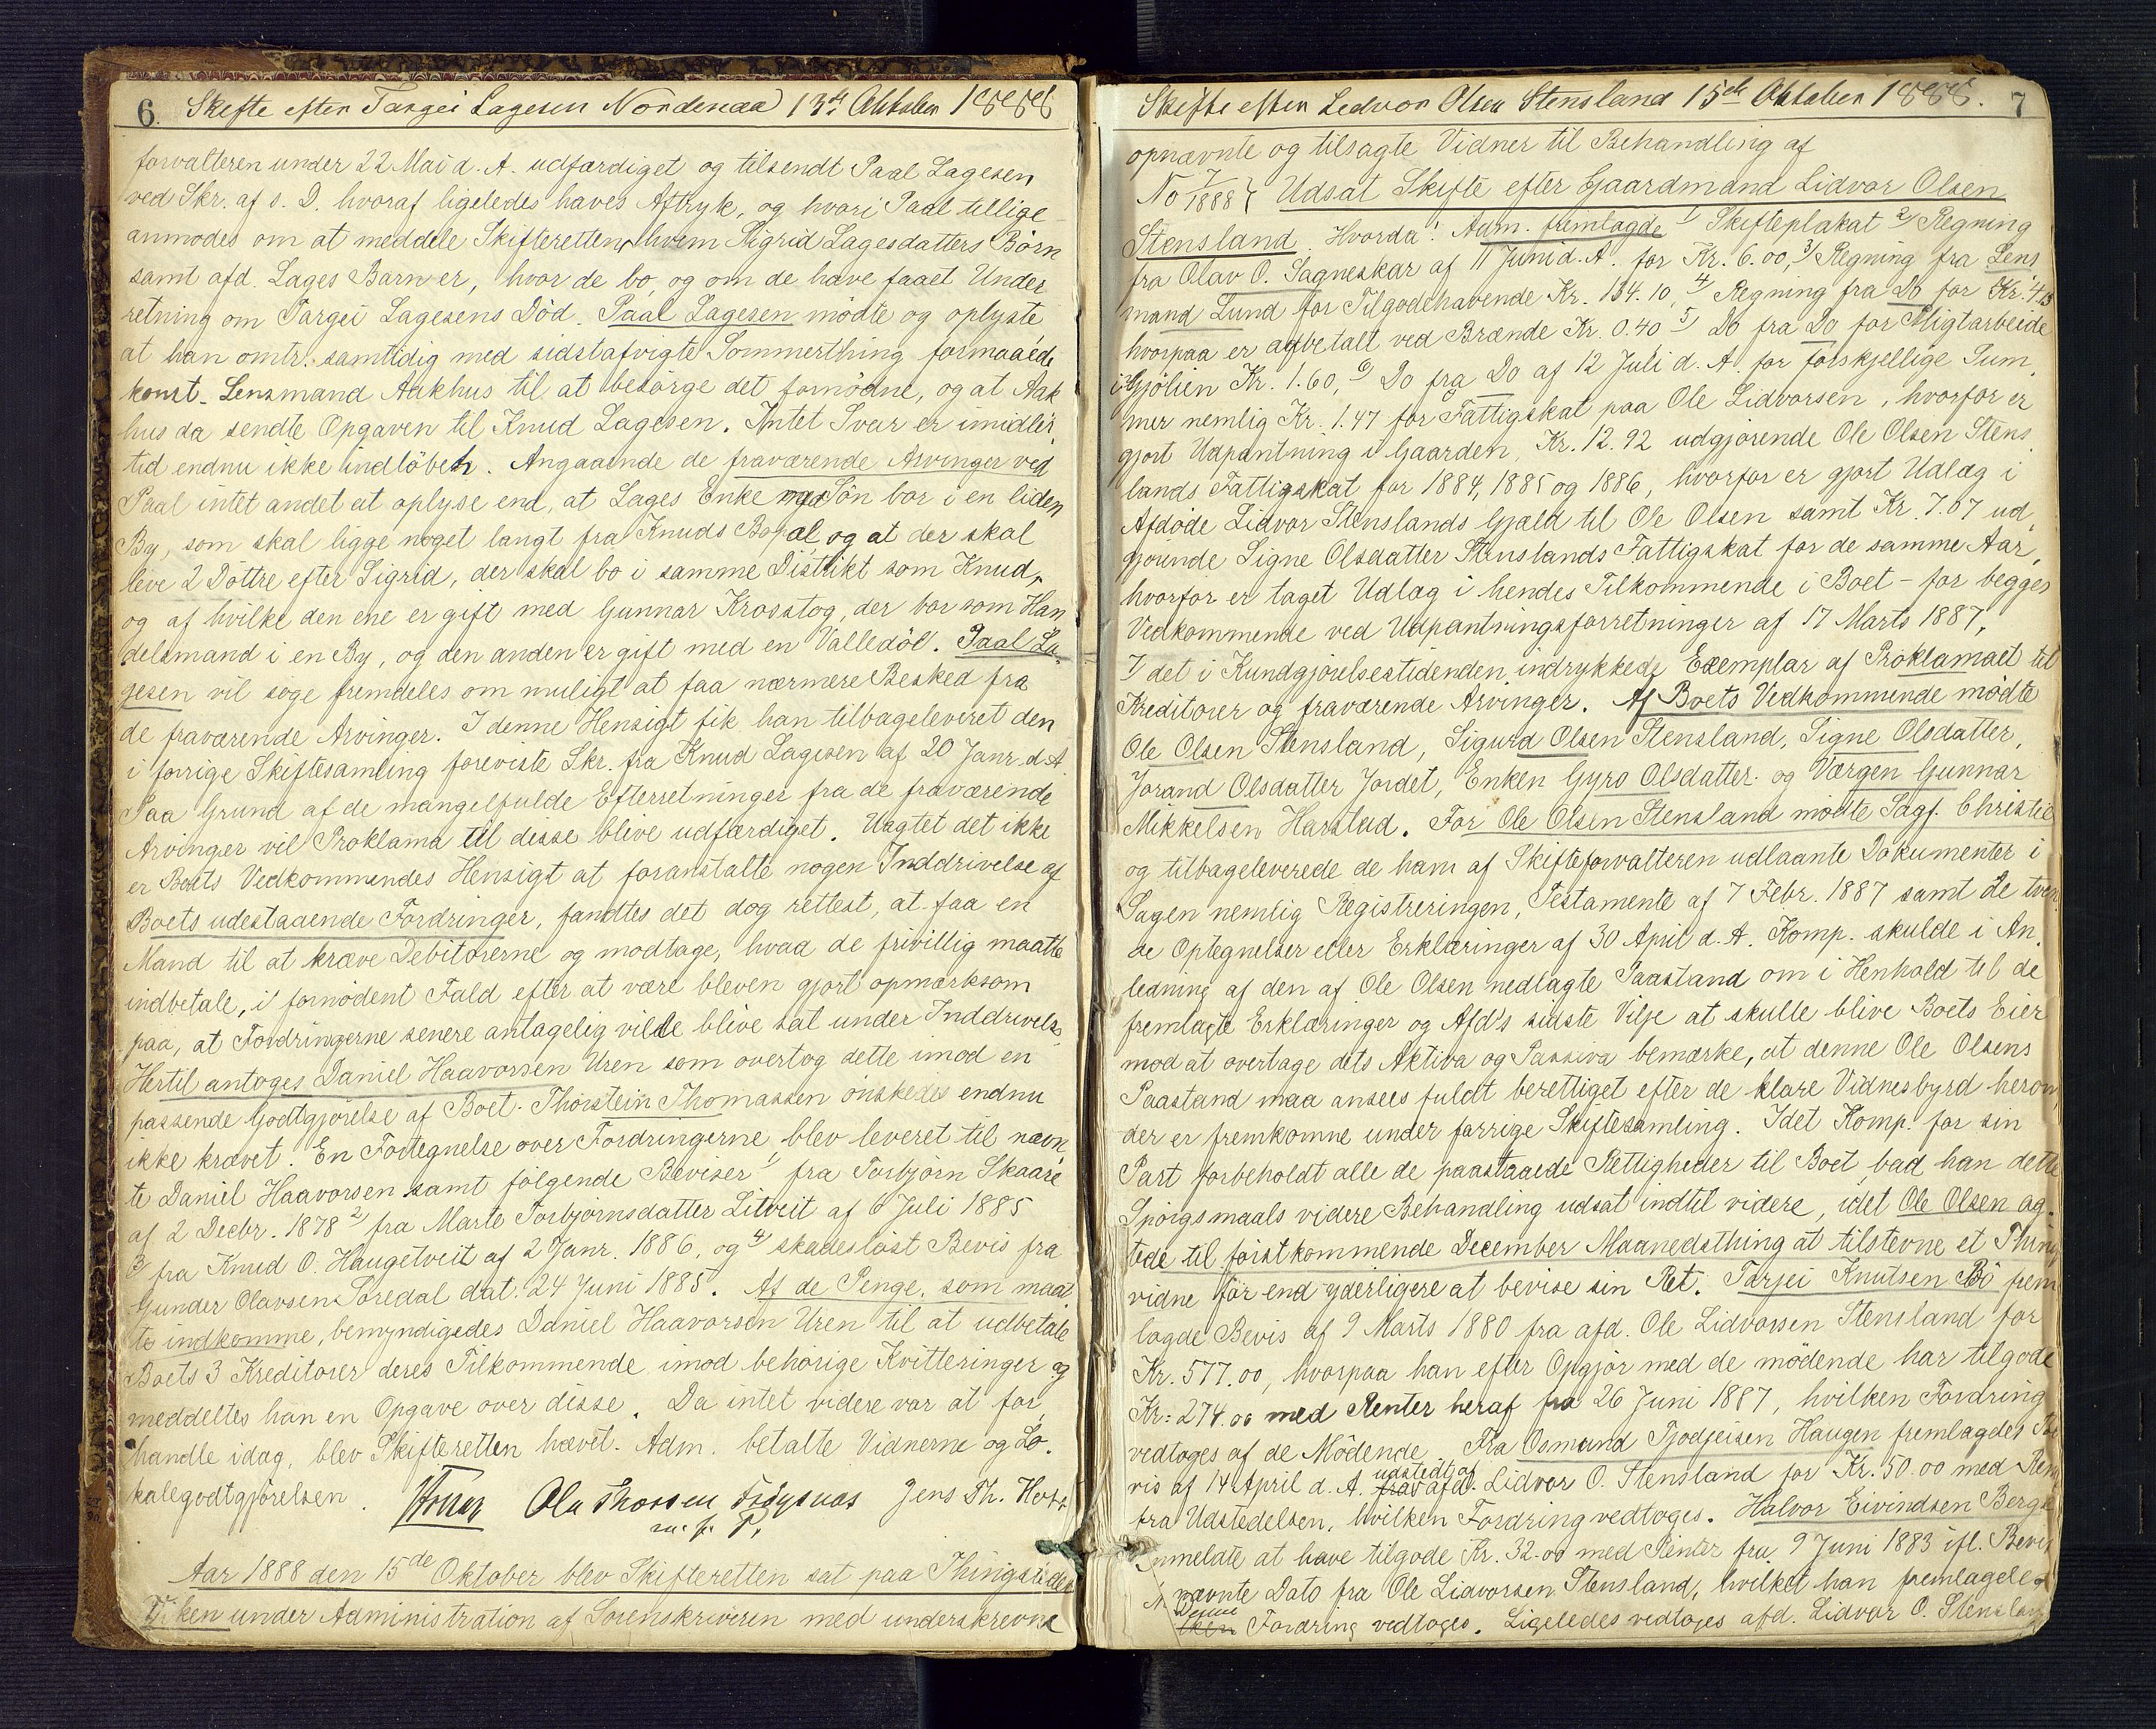 6. Skifte efter Targei Lagesen Nordenaa 13de Oktober 1888
forvalteren under 22 Mai d. A. udfærdiget og tilsendt Paal Lagesen
ved Skr. af s. D. hvoraf ligeledes haves Aftryk, og hvori Paal tillige
anmodes om at meddele Skifteretten, hvem Sigrid Lagesdatters Börn
samt afd. Lages Barn er, hvor de bo, og om de have faaet Under
retning om Targei Lagesens Död. Paal Lagesen mödte og oplyste
at han omtr. samtidig med sidstafvigte Sommerthing formaaede
konst. Lensmand Aakhus til at besörge det fornödne, og at Aak
hus da sendte Opgaven til Knud Lagesen. Intet Svar er imidler
tid endnu ikke indlöbet. Angaaende de fraværende Arvinger ved
Paal intet andet at oplyse end, at Lages Enke med Sön bor i en liden
By, som skal ligge noget langt fra Knuds Bopæl og at der skal
leve 2 Döttre efter Sigrid, der skal bo i samme Distrikt som Knud,
og af hvilke den ene er gift med Gunnar Krosstog, der bor som Han
delsmand i en By, og den anden er gift med en Valledöl. Paal La
gesen vil söge fremdeles om muligt at faa nærmere Besked fra
de fraværende Arvinger. I denne Hensigt fik han tilbageleveret den
i forrige Skiftesamling foreviste Skr. fra Knud Lagesen af 20 Janr. d. A.
Paa Grund af de mangelfulde Efterretninger fra de fraværende
Arvinger vil Proklama til disse blive udfærdiget. Uagtet det ikke
er Boets Vedkommendes Hensigt at foranstalte nogen Inddrivelse af
Boets udestaaende Fordringer, fandtes det dog rettest, at faa en
Mand til at kræve Debitorerne og modtage, hvad de frivillig maatte
indbetale, i fornödent Fald efter at være bleven gjort opmærksom
paa, at Fordringerne senere antagelig vilde blive sat under Inddrivelse.
Hertil antoges Daniel Haavorsen Uren som overtog dette imod en
passende Godtgjörelse af Boet. Thorstein Thomassen önskedes endnu
ikke krævet. En Fortegnelse over Fordringerne blev leveret til nævn
te Daniel Haavorsen samt fölgende Beviser 1) fra Torbjörn Skaare
af 2 Decbr. 1878 2) fra Marte Torbjörnsdatter Litveit af 6 Juli 1885
3 fra Knud O. Haugetveit af 2 Janr. 1886, og 4) skadeslöst Bevis fra
Gunder Olavsen Toredal dat. 24 Juni 1885. Af de Penge, som maat
te indkomme, bemyndigedes Daniel Haavorsen Uren til at udbetale
Boets 3 Kreditorer deres Tilkommende imod behörige Kvitteringer og
meddeltes han en Opgave over disse. Da intet videre var at for
handle idag, blev Skifteretten hævet. Adm. betalte Vidnerne og Lo-
kalegodtgjörelsen. Ole Thorsen Jens Th.
m. f. P.
Aar 1888 den 15de Oktober blev Skifteretten sat paa Thingstedet
Viken under Administration af Sorenskriveren med underskrevne
Skifte efter Ledvor Olsen Stensland 15de Oktober 1888. 7
opnævnte og tilsagte Vidner til Behandling af
No 7/1888 } Udsat Skifte efter Gaardmand Lidvor Olsen
Stensland. Hvorda: Adm. fremlagde 1) Skifteplakat 2) Regning
fra Olav O. Sagneskar af 11 Juni d. A. for Kr. 6.00, 3) Regning fra Lens
mand Lund for Tilgodehavende Kr. 134.10, 4) Regning fra Do for Kr. 4.
hvorpaa er afbetalt ved Brænde Kr. 0.40 5) Do fra Do for Pligtarbeide
i Gjölien Kr. 1.60, 6) Do fra Do af 12 Juli d. A. for forskjellige Sum
mer nemlig Kr. 1.47 for Fattigskat paa Ole Lidvorsen, hvorfor er
gjort Udpantning i Gaarden, Kr. 12.92 udgjörende Ole Olsen Stens
lands Fattigskat for 1884, 1885 og 1886, hvorfor er gjort Udlæg i
Afdöde Lidvor Stenslands Gjæld til Ole Olsen samt Kr. 7.07 ud
gjörende Signe Olsdatter Stenslands Fattigskat for de samme Aar,
hvorfor er taget Udlæg i hendes Tilkommende i Boet - for begges
Vedkommende ved Udpantningsforretninger af 17 Marts 1887,
7) det i Kundgjörelsestidenden indrykkede Exemplar af Proklamaet til
Kreditorer og fraværende Arvinger. Af Boets Vedkommende mödte
Ole Olsen Stensland, Sigurd Olsen Stensland, Signe Olsdatter,
Jorand Olsdatter Jordet, Enken Gyro Olsdatter og Værgen Gunnar
Mikkelsen Harstad. For Ole Olsen Stensland mödte Sagf. Christie
og tilbageleverede de ham af Skifteforvalteren udlaante Dokumenter i
Sagen nemlig Registreringen, Testamente af 7 Febr. 1887 samt de tven
de Optegnelser eller Erklæringer af 30 April d. A. Komp. skulde i An
ledning af den af Ole Olsen nedlagte Paastand om i Henhold til de
fremlagte Erklæringer og Afd's sidste Vilje at skulle blive Boets Eier
mod at overtage dets Aktiva og Passiva bemærke, at denne Ole Olsens
Paastand maa ansees fuldt berettiget efter de klare Vidnesbyrd herom,
der er fremkomne under forrige Skiftesamling. Idet Komp. for sin
Part forbeholdt alle de paastaaede Rettigheder til Boet, bad han dette
Spörgsmaals videre Behandling udsat indtil videre, idet Ole Olsen ag-
tede til förstkommende December Maanedsthing at tilstevne et Thing
vidne för end yderligere at bevise sin Ret. Tarjei Knutsen Bö frem
lagde Bevis af 9 Marts 1880 fra afd. Ole Lidvorsen Stensland for
Kr. 577.00, hvorpaa han efter Opgjör med de mödende har tilgode
Kr. 274.00 med Renter heraf fra 26 Juni 1887, hvilken Fordring
vedtoges af de Mödende. Fra Osmund Tjodjeisen Haugen fremlagdes Be
vis af 14 April d. A. udstedt af afd. Lidvor O. Stensland for Kr. 50.00 med Rent
fra Udstedelsen, hvilken Fordring vedtoges. Halvor Eivindsen Berge
anmeldte at have tilgode Kr. 32.00 med Renter fra 9 Juni 1883 ifl. Bevis
nævnte Dato fra Ole Lidvorsen Stensland, hvilket han fremlagde.
Denne Fordring vedtoges. Ligeledes vedtoges afd. Lidvor O. Stensland